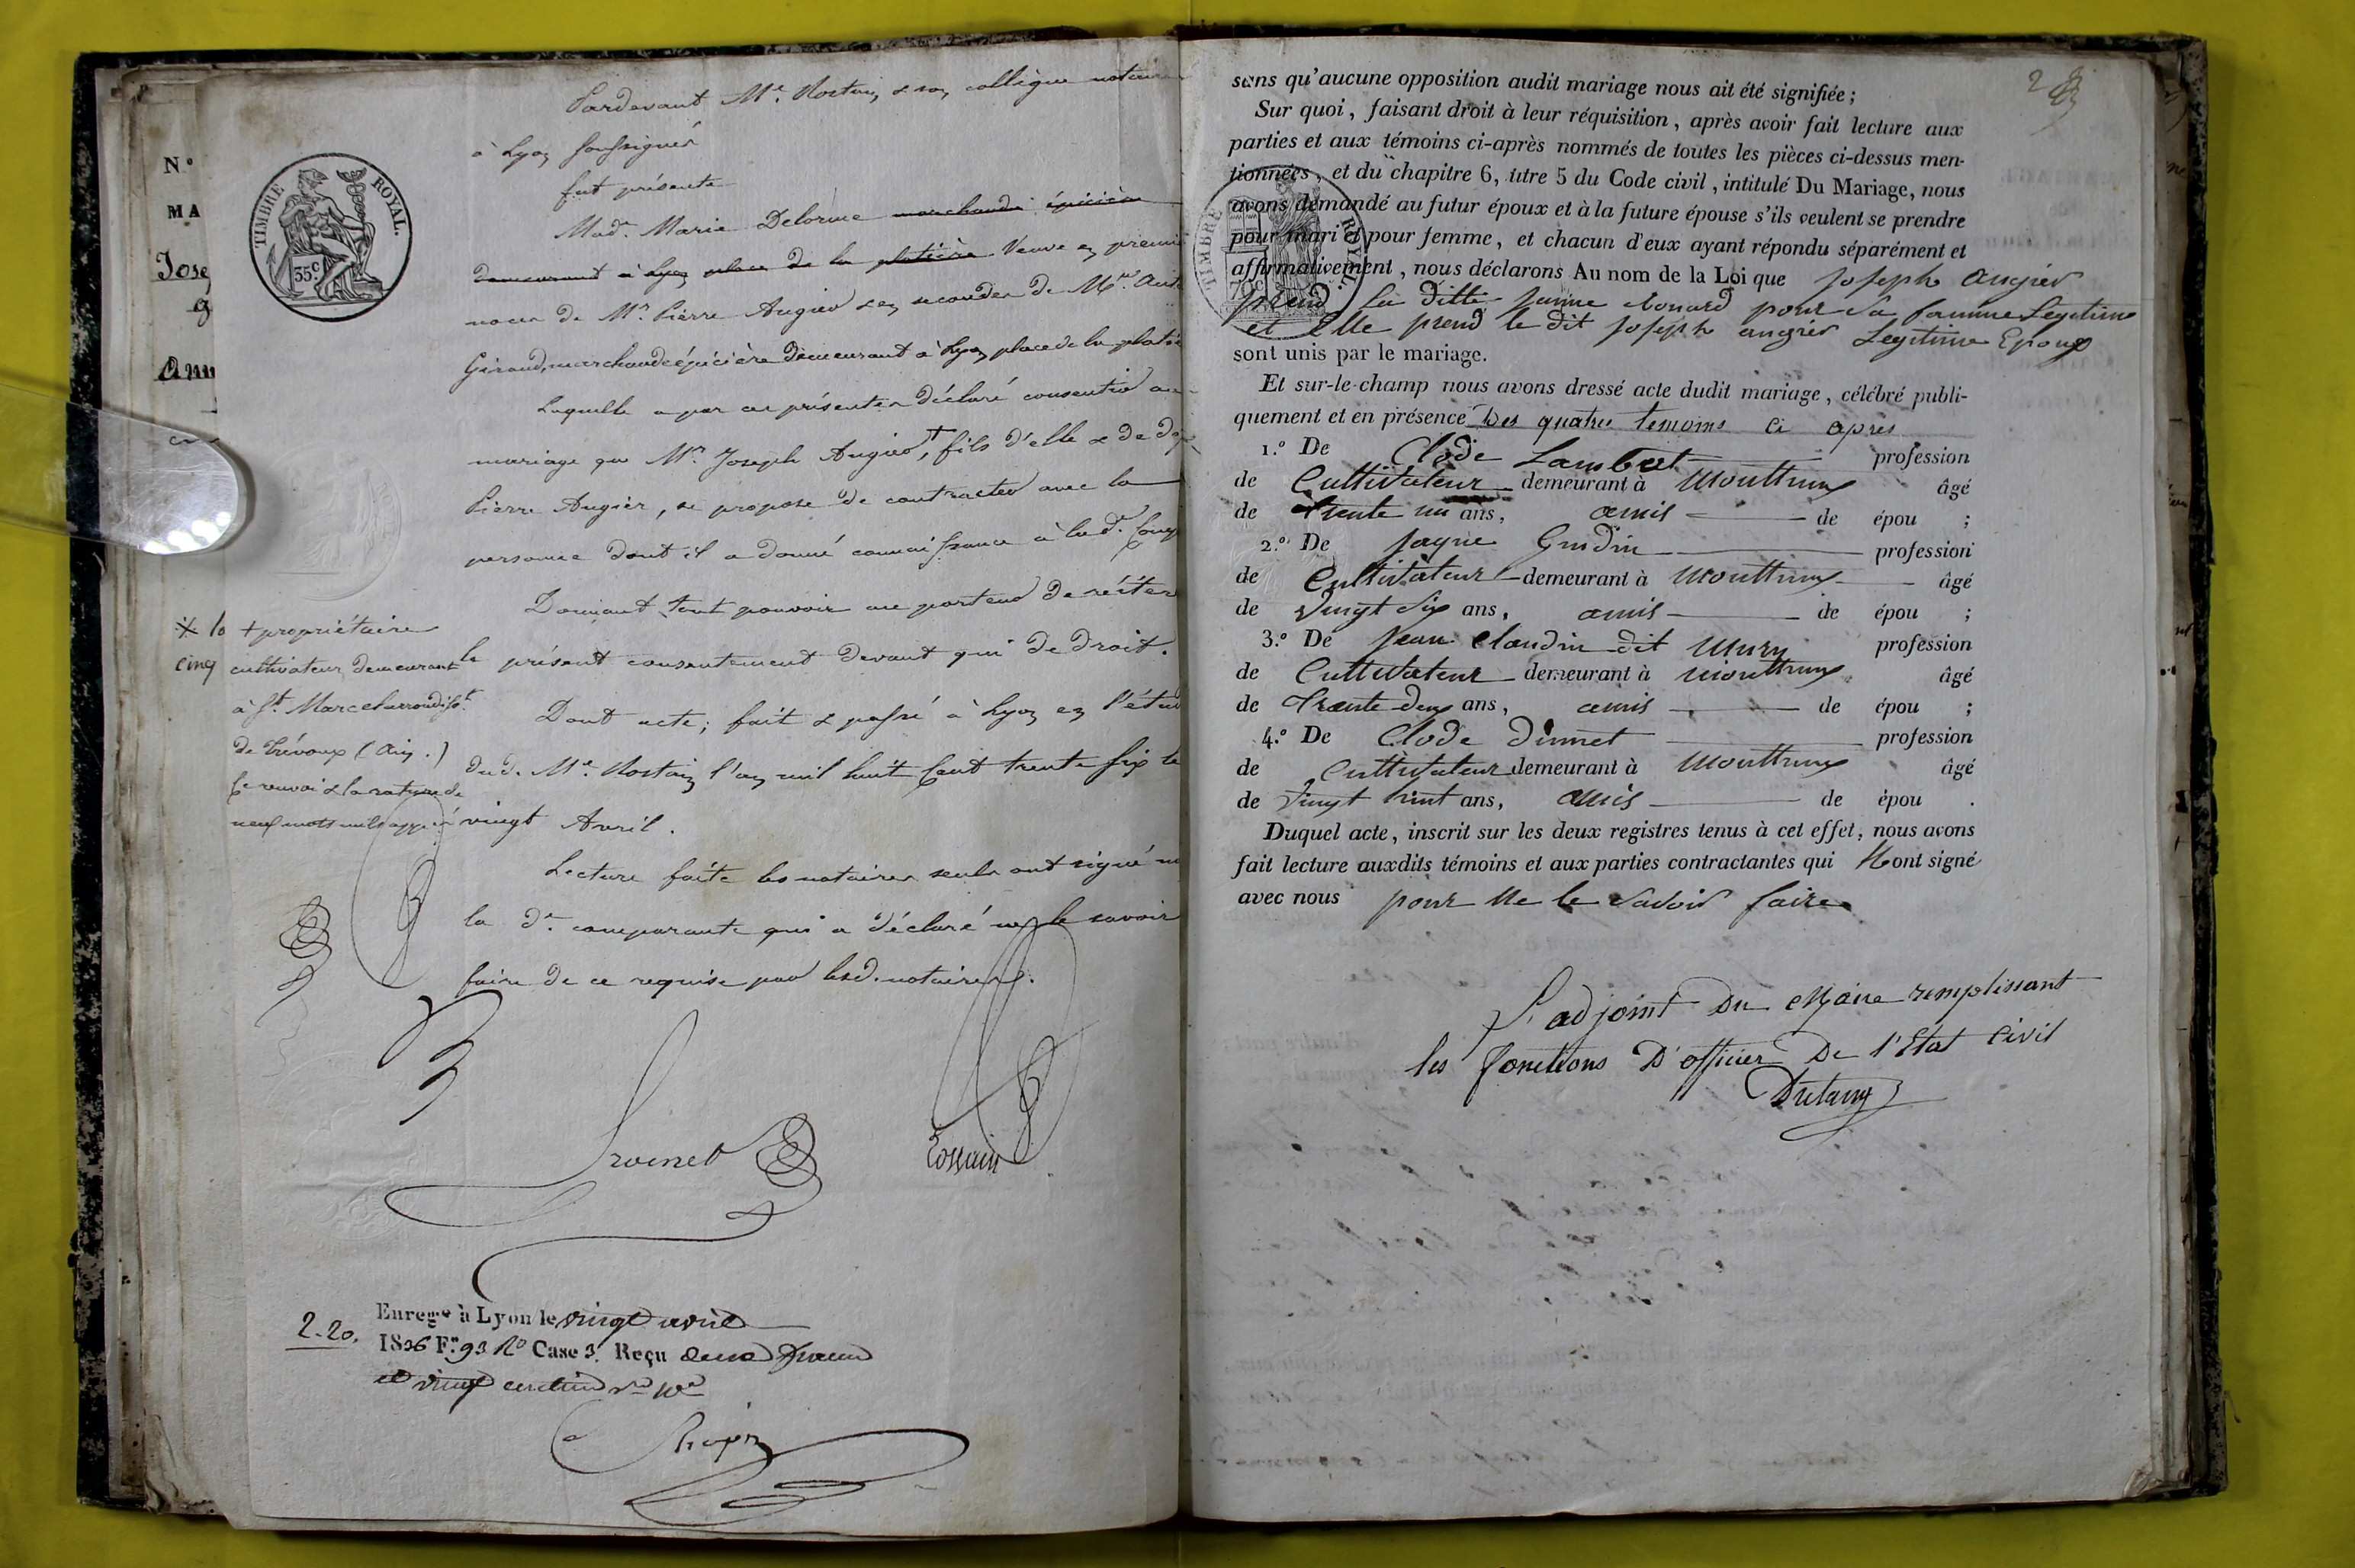 N.º
MA
Jose
g
Ann
TIMBRE ROYAL.
35c
Pardevant Me. Rostain, & son collègue notaires
à Lyon soussignés
fut présente
Made. Marie Delorme marchande épicière
demeurant à Lyon place de la platière Veuve en premières
noces de Mr. Pierre Augier & en secondes de Mr.
Giraud, marchande épicière demeurant à Lyon place de la platière
Laquelle a par ces présentes déclaré consentir au
mariage que Mr. Joseph Augier +, fils d'elle & de
Pierre Augier, se propose de contracter avec la
personne dont il a donné connaissance à lad. comp
Donnant tout pouvoir au porteur de réitérer
le présent consentement devant qui de droit.
Dont acte; fait & passé à Lyon en l'étude
dud. Me. Rostain l'an mil huit cent trente six le
vingt Avril.
Lecture faite les notaires seuls ont signé
la de. comparante qui a déclaré ne le savoir
faire de ce requise par lesd. notaires.
cinq
+ propriétaire
cultivateur demeurant
à St. Marcel arrondisst.
de Trévoux (Ain.)
Ce renvoi & la rature de
neuf mots nuls
2-20.
Enregé à Lyon le vingt avril
1836 Fº 93 Rº Case 3. Reçu deux francs
et vingt centimes
283
sans qu'aucune opposition audit mariage nous ait été signifiée;
Sur quoi, faisant droit à leur réquisition, après avoir fait lecture aux
parties et aux témoins ci-après nommés de toutes les pièces ci-dessus men-
tionnées, et du chapitre 6, titre 5 du Code civil, intitulé Du Mariage, nous
avons demandé au futur époux et à la future épouse s'ils veulent se prendre
pour mari et pour femme, et chacun d'eux ayant répondu séparément et
affirmativement, nous déclarons Au nom de la Loi que joseph augier
prend la ditte janne pour sa famme Legitime
et Elle prend le dit joseph augier Legitime Epoux
sont unis par le mariage.
Et sur-le-champ nous avons dressé acte dudit mariage, célébré publi-
quement et en présence Des quatres temoins ci apres
1.º De Clode Lambert profession
de Cultivateur demeurant à âgé
de trente un ans, amis de épou ;
2.º De jaque Gudin profession
de Cultivateur demeurant à âgé
de vingt six ans, amis de épou ;
3.º De jean Claudin dit Mury profession
de Cultivateur demeurant à âgé
de Trante deux ans, amis de épou ;
4.º De Clode profession
de Cultivateur demeurant à âgé
de vingt huit ans, amis de épou .
Duquel acte, inscrit sur les deux registres tenus à cet effet, nous avons
fait lecture auxdits témoins et aux parties contractantes qui N ont signé
avec nous pour ne le savoir faire
TIMBRE ROYAL.
70c
L'adjoint Du Maire remplissant
les fonctions D'officier De l'Etat civil